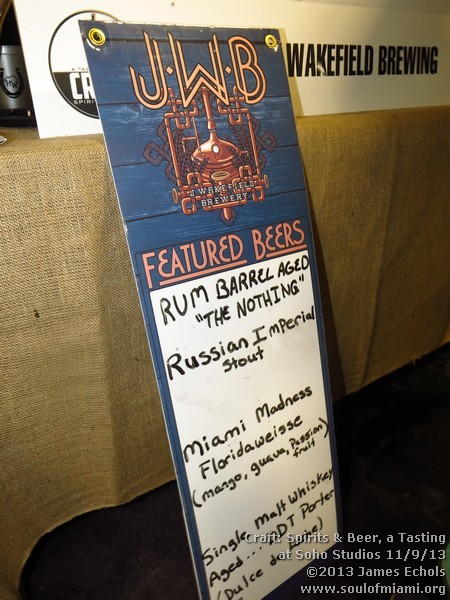 A TA
CR
SPIRI
WAKEFIELD BREWING
J·W·B
J. WAKEFIELD
BREWERY
FEATURED BEERS
RUM BARREL AGED
"THE NOTHING"
Russian Imperial
Stout
Miami Madness
Floridaweisse
(mango, guava, Passion
fruit)
Single Malt Whiskey
Aged... DDT Porter
(Dulce de
Craft: Spirits & Beer, a Tasting
at Soho Studios 11/9/13
©2013 James Echols
www.soulofmiami.org